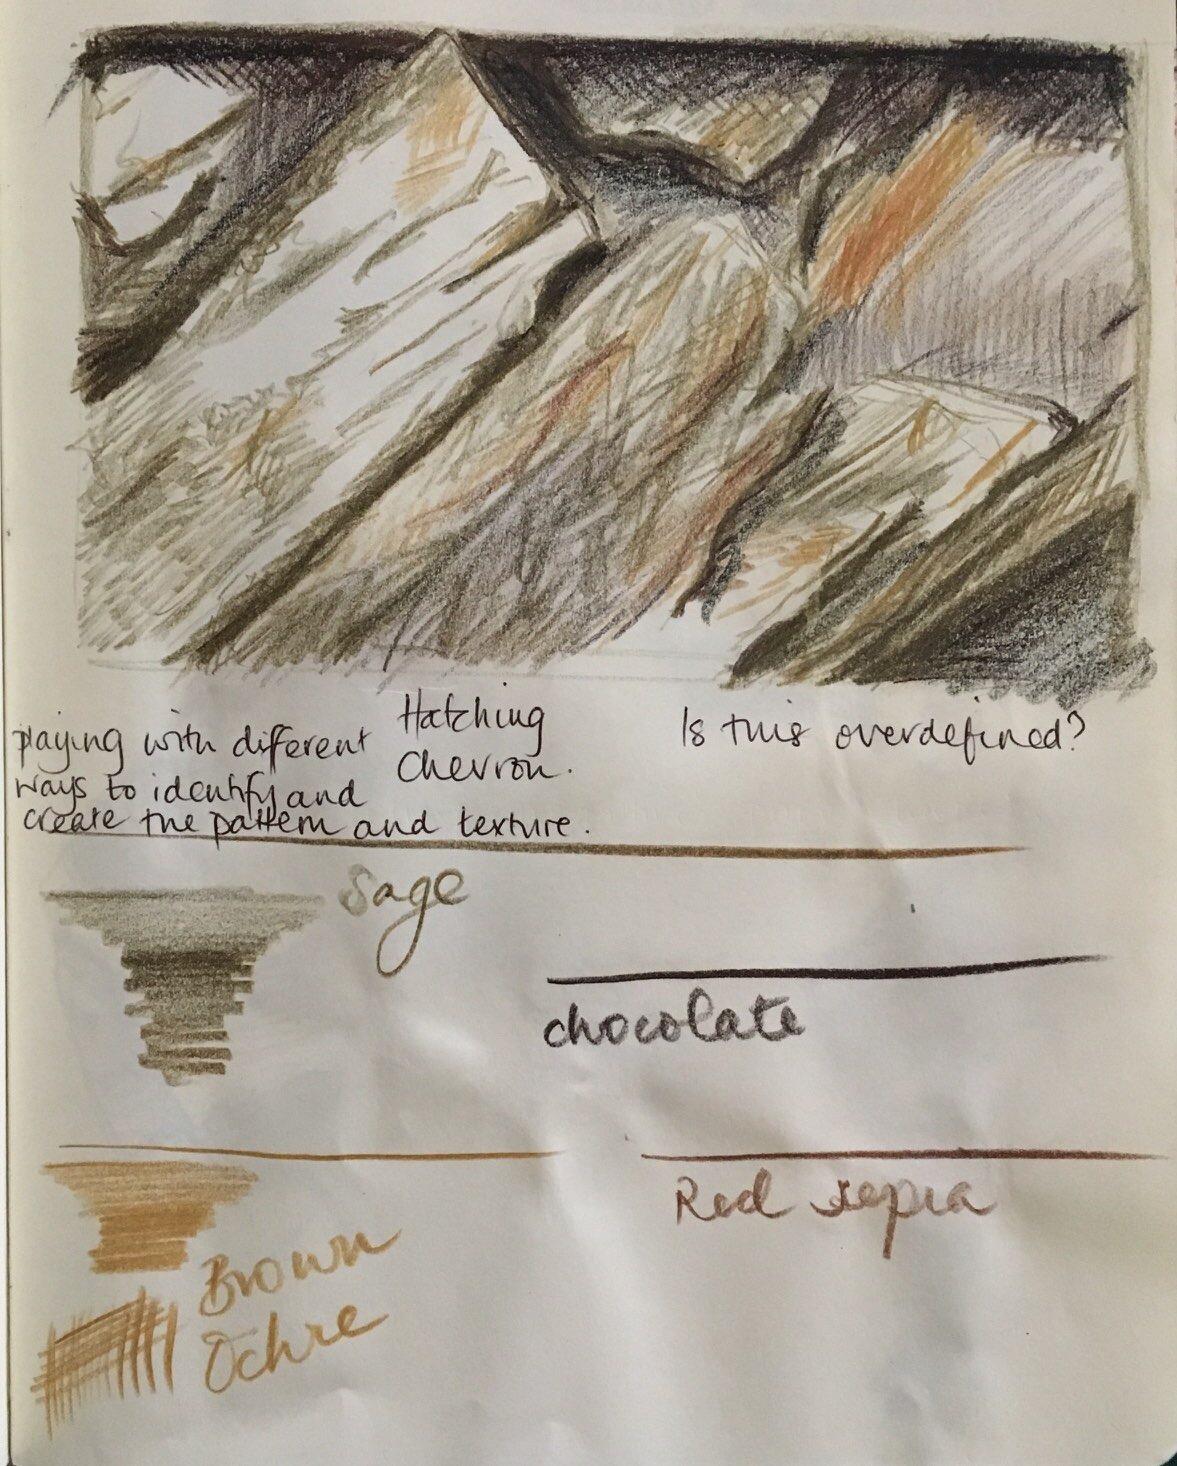 playing with different
ways to identify and
create the pattern and texture.
Hatching
Chevron.
Is this overdefined?
Sage
chocolate
Red sepia
Brown
Ochre